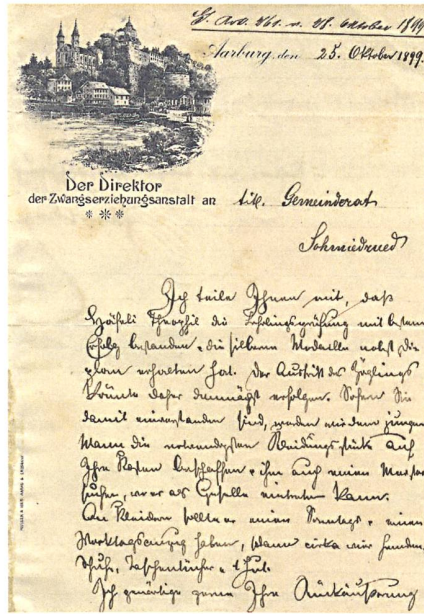 Aarburg, den 25. Oktober 1899.
Der Direktor
der Zwangserziehungsanstalt an tit. Gemeinderat
Schmiedrued
Ich teile Ihnen mit, daß
Häfeli Theophil die Lehrlingsprüfung mit bestem
Erfolg bestanden & die silberne Medaille nebst Di-
plom erhalten hat. Der Austritt des Zöglings
könnte daher demnächst erfolgen. Sofern Sie
damit einverstanden sind, werden wir dem jungen
Mann die notwendigsten Kleidungsstücke auf
Ihre Kosten beschaffen & ihm auch einen Meister
suchen, wo er als Geselle eintreten kann.
An Kleidern sollte er einen Sonntags- & einen
Werktagsanzug haben, dann cirka vier Hemden,
Schuhe, Taschentücher & 1 Hut.
Ich gewärtige gerne Ihre Rückäußerung